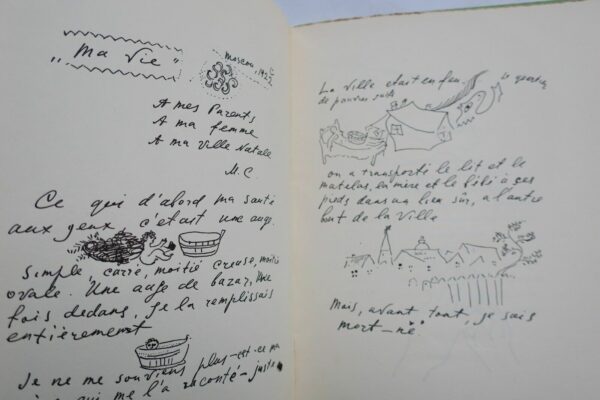 "Ma Vie"
Moscou, 1922
A mes Parents
A ma femme
A ma Ville Natale
M.C.
Ce qui d'abord m'a sauté
aux yeux, c'était une aug.
Simple, carré, moitié creuse, moitié
ovale. Une auge de bazar, Une
fois dedans, je la remplissais
entièrement
Je ne me souviens plus – est-ce ma
qui me l'a raconté – juste
La Ville était en feu. le quartier
de pauvres juifs
on a transporté le lit et le
matelas, la mère et le bébé à ses
pieds dans un lieu sûr, à l'autre
but de la Ville
Mais, avant tout, je suis
mort-né.